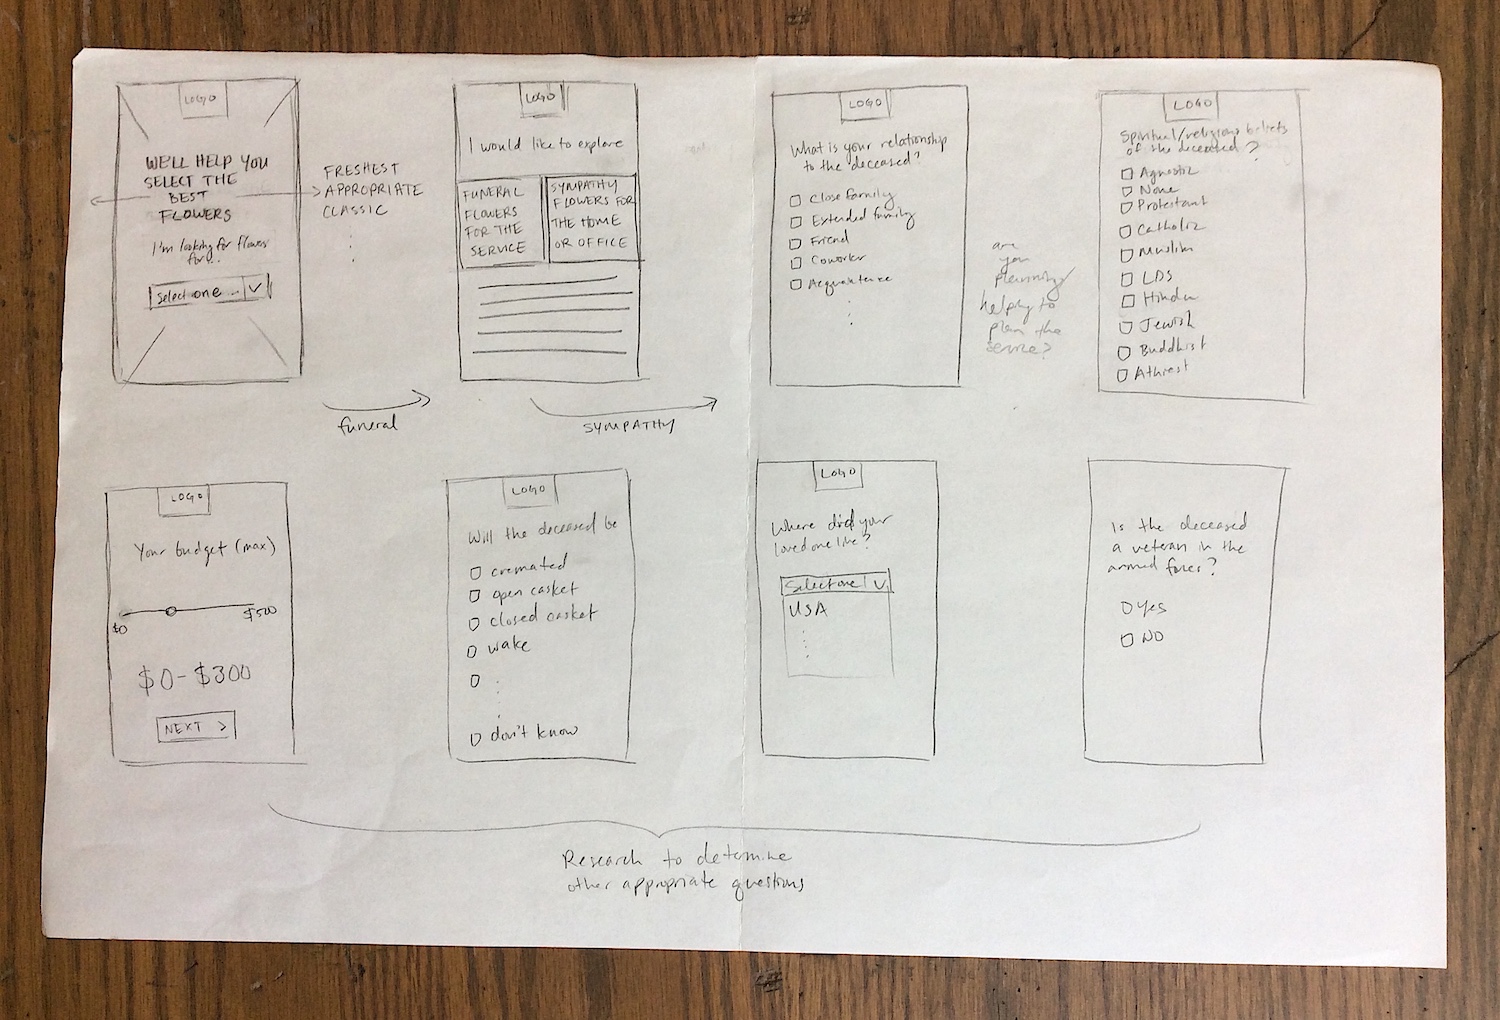 LOGO
WE'LL HELP YOU
SELECT THE
BEST
FLOWERS
I'm looking for flowers
for...
Select one ...
FRESHEST
APPROPRIATE
CLASSIC
funeral
LOGO
I would like to explore
FUNERAL
FLOWERS
FOR THE
SERVICE
SYMPATHY
FLOWERS FOR
THE HOME
OR OFFICE
SYMPATHY
LOGO
What is your relationship
to the deceased?
Close family
Extended family
Friend
Coworker
Acquaintence
are
you
planning/
helping to
plan the
service?
LOGO
Spiritual/religious beliefs
of the deceased?
Agnostic
None
Protestant
Catholic
Muslim
LDS
Hindu
Jewish
Buddhist
Atheist
LOGO
Your budget (max)
$0
$500
$0-$300
NEXT >
LOGO
Will the deceased be
cremated
open casket
closed casket
wake
don't know
LOGO
Where did your
loved one live?
Select one
USA
Is the deceased
a veteran in the
armed forces?
Yes
NO
Research to determine
other appropriate questions